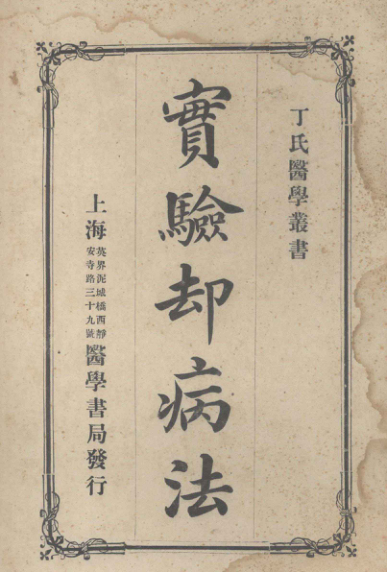 丁氏醫學叢書
實驗却病法
上海英界泥城橋西靜安寺路三十九號醫學書局發行